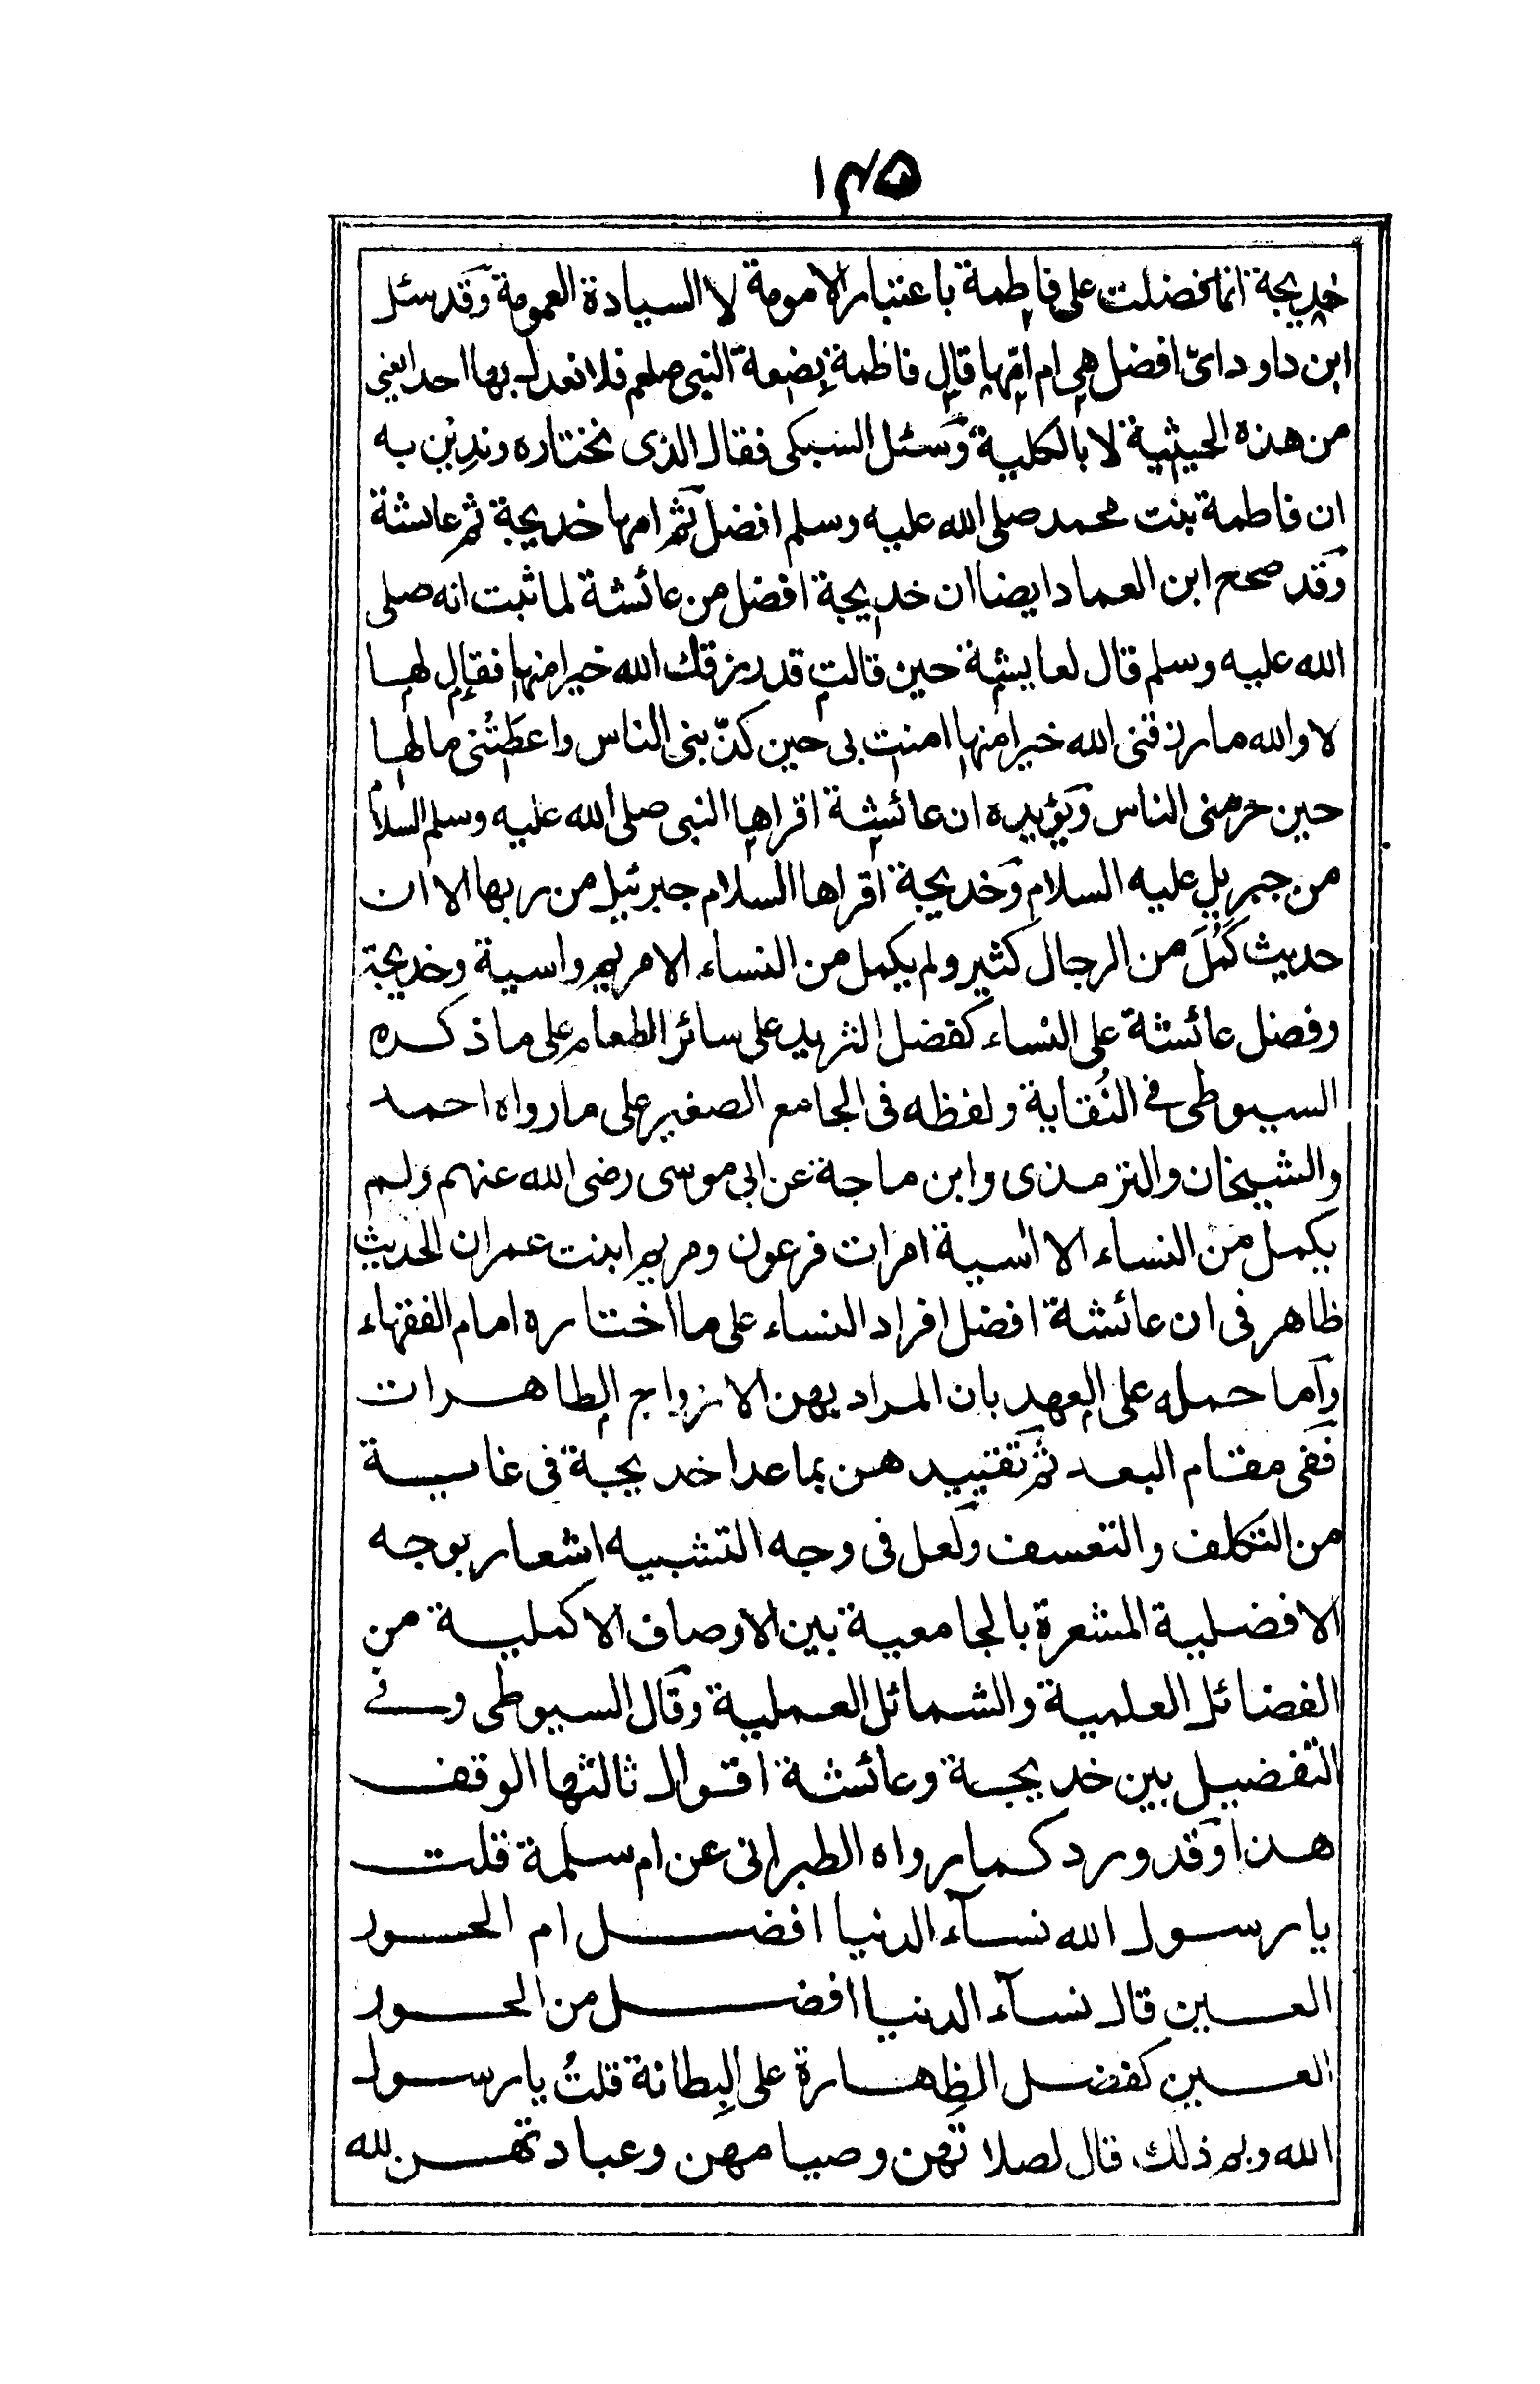 ١٣٥
خديجة انما فضلت على فاطمة باعتبار الامومة لا السيادة العمومة وقد سئل
ابن داود اىّ افضل هى ام امّها قال فاطمة بضعة النبى صلعم فلا نعدل بها احدا يعنى
من هذه الحيثية لا بالكلية وسئل السبكى فقال الذى نختاره وندين به
ان فاطمة بنت محمد صلى الله عليه وسلم افضل ثم امها خديجة ثم عائشة
وقد صحح ابن العماد ايضا ان خديجة افضل من عائشة لما ثبت انه صلى
الله عليه وسلم قال لعايشة حين قالت قد رزقك الله خيرا منها فقال لها
لا والله ما رزقنى الله خيرا منها امنت بى حين كذّبنى الناس واعطَتْنى مالها
حين حرمنى الناس ويؤيده ان عائشة اقراها النبى صلى الله عليه وسلم السلام
من جبريل عليه السلام وخديجة اقراها السلام جبرئيل من ربها الا ان
حديث كَمُلَ من الرجال كثير ولم يكمل من النساء الا مريم واسية وخديجة
وفضل عائشة على النساء كفضل الثريد على سائر الطعام على ما ذكره
السيوطى فى النُقاية ولفظه فى الجامع الصغير على ما رواه احمد
والشيخان والترمذى وابن ماجة عن ابى موسى رضى الله عنهم ولم
يكمل من النساء الا اسية امرات فرعون ومريم ابنت عمران الحديث
ظاهر فى ان عائشة افضل افراد النساء على ما اختاره امام الفقهاء
وآما حمله على العهد بان المراد بهن الازواج الطاهرات
ففى مقام البعد ثم تقييد هن بما عدا خديجة فى غاية
من التكلف والتعسف ولعل فى وجه التشبيه اشعار بوجه
الافضلية المشعرة بالجامعية بين الاوصاف الاكملية من
الفضائل العلمية والشمائل العملية وقال السيوطى وفى
التفضيل بين خديجة وعائشة اقوال ثالثها الوقف
هذا وقد ورد كما رواه الطبرانى عن ام سلمة قلت
يا رسول الله نسآء الدنيا افضل ام الحور
العين قال نسآء الدنيا افضل من الحور
العين كفضل الظِهارة على البِطانة قلتُ يا رسول
الله وبم ذلك قال لصلاتهن وصيامهن وعبادتهن لله